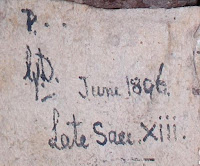 P. ...
June 1896.
Late Saec. XIII.